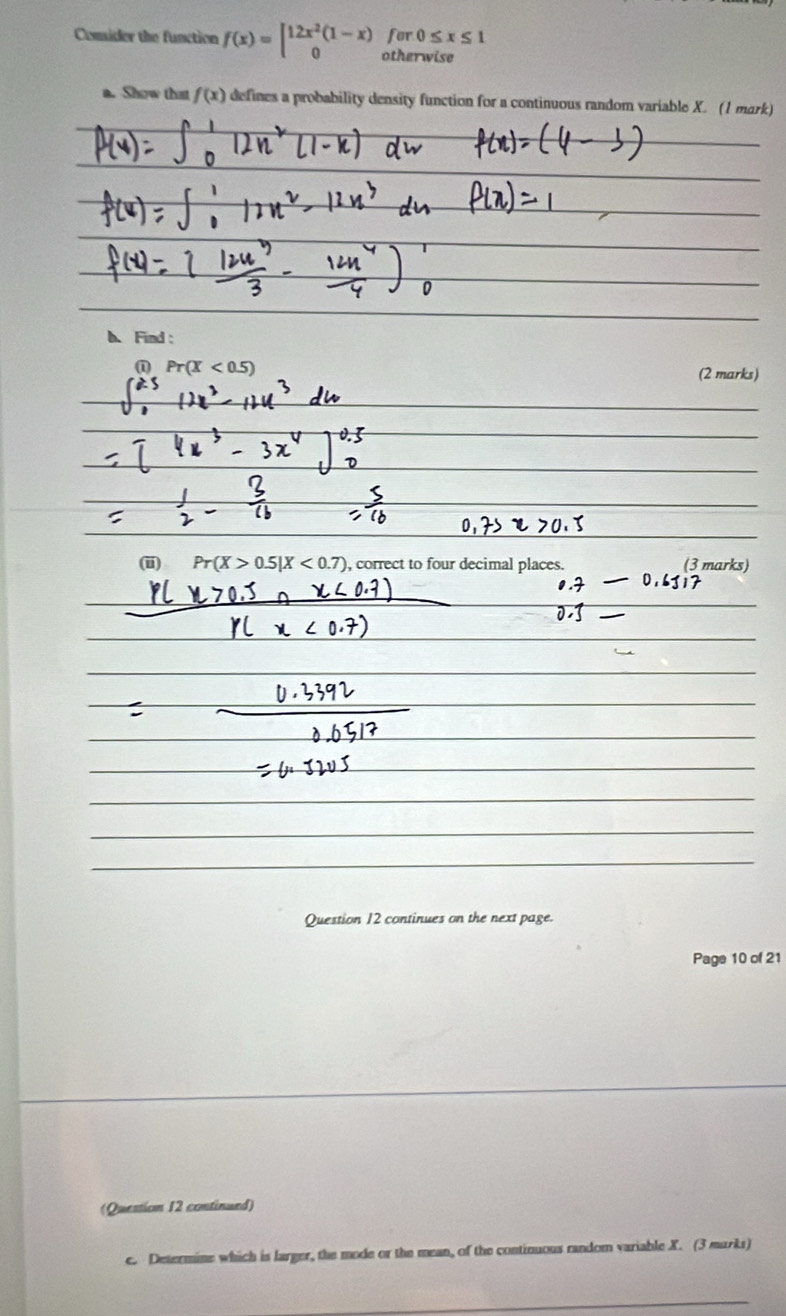 Consider the function f(x) = [12x²(1 − x) for 0 ≤ x ≤ 1
0 otherwise
a. Show that f(x) defines a probability density function for a continuous random variable X. (1 mark)
f(x) = ∫₀¹ 12x² (1-x) dx f(x) = (4 - 3)
f(x) = ∫₀¹ 12x² - 12x³ dx f(x) = 1
f(x) = [ 12x³/3 - 12x⁴/4 ]₀¹
b. Find :
(i) Pr(X < 0.5) (2 marks)
∫₀^0.5 12x² - 12x³ dx
= [ 4x³ - 3x⁴ ]₀^0.5
= 1/2 - 3/16 = 5/16 0,7> x >0.5
(ii) Pr(X > 0.5|X < 0.7), correct to four decimal places. (3 marks)
P( x>0.5 ∩ x<0.7) / P( x < 0.7) 0.7 — 0.6517
0.5 —
= 0.3392 / 0.6517
= 0.5205
Question 12 continues on the next page.
Page 10 of 21
(Question 12 continued)
c. Determine which is larger, the mode or the mean, of the continuous random variable X. (3 marks)